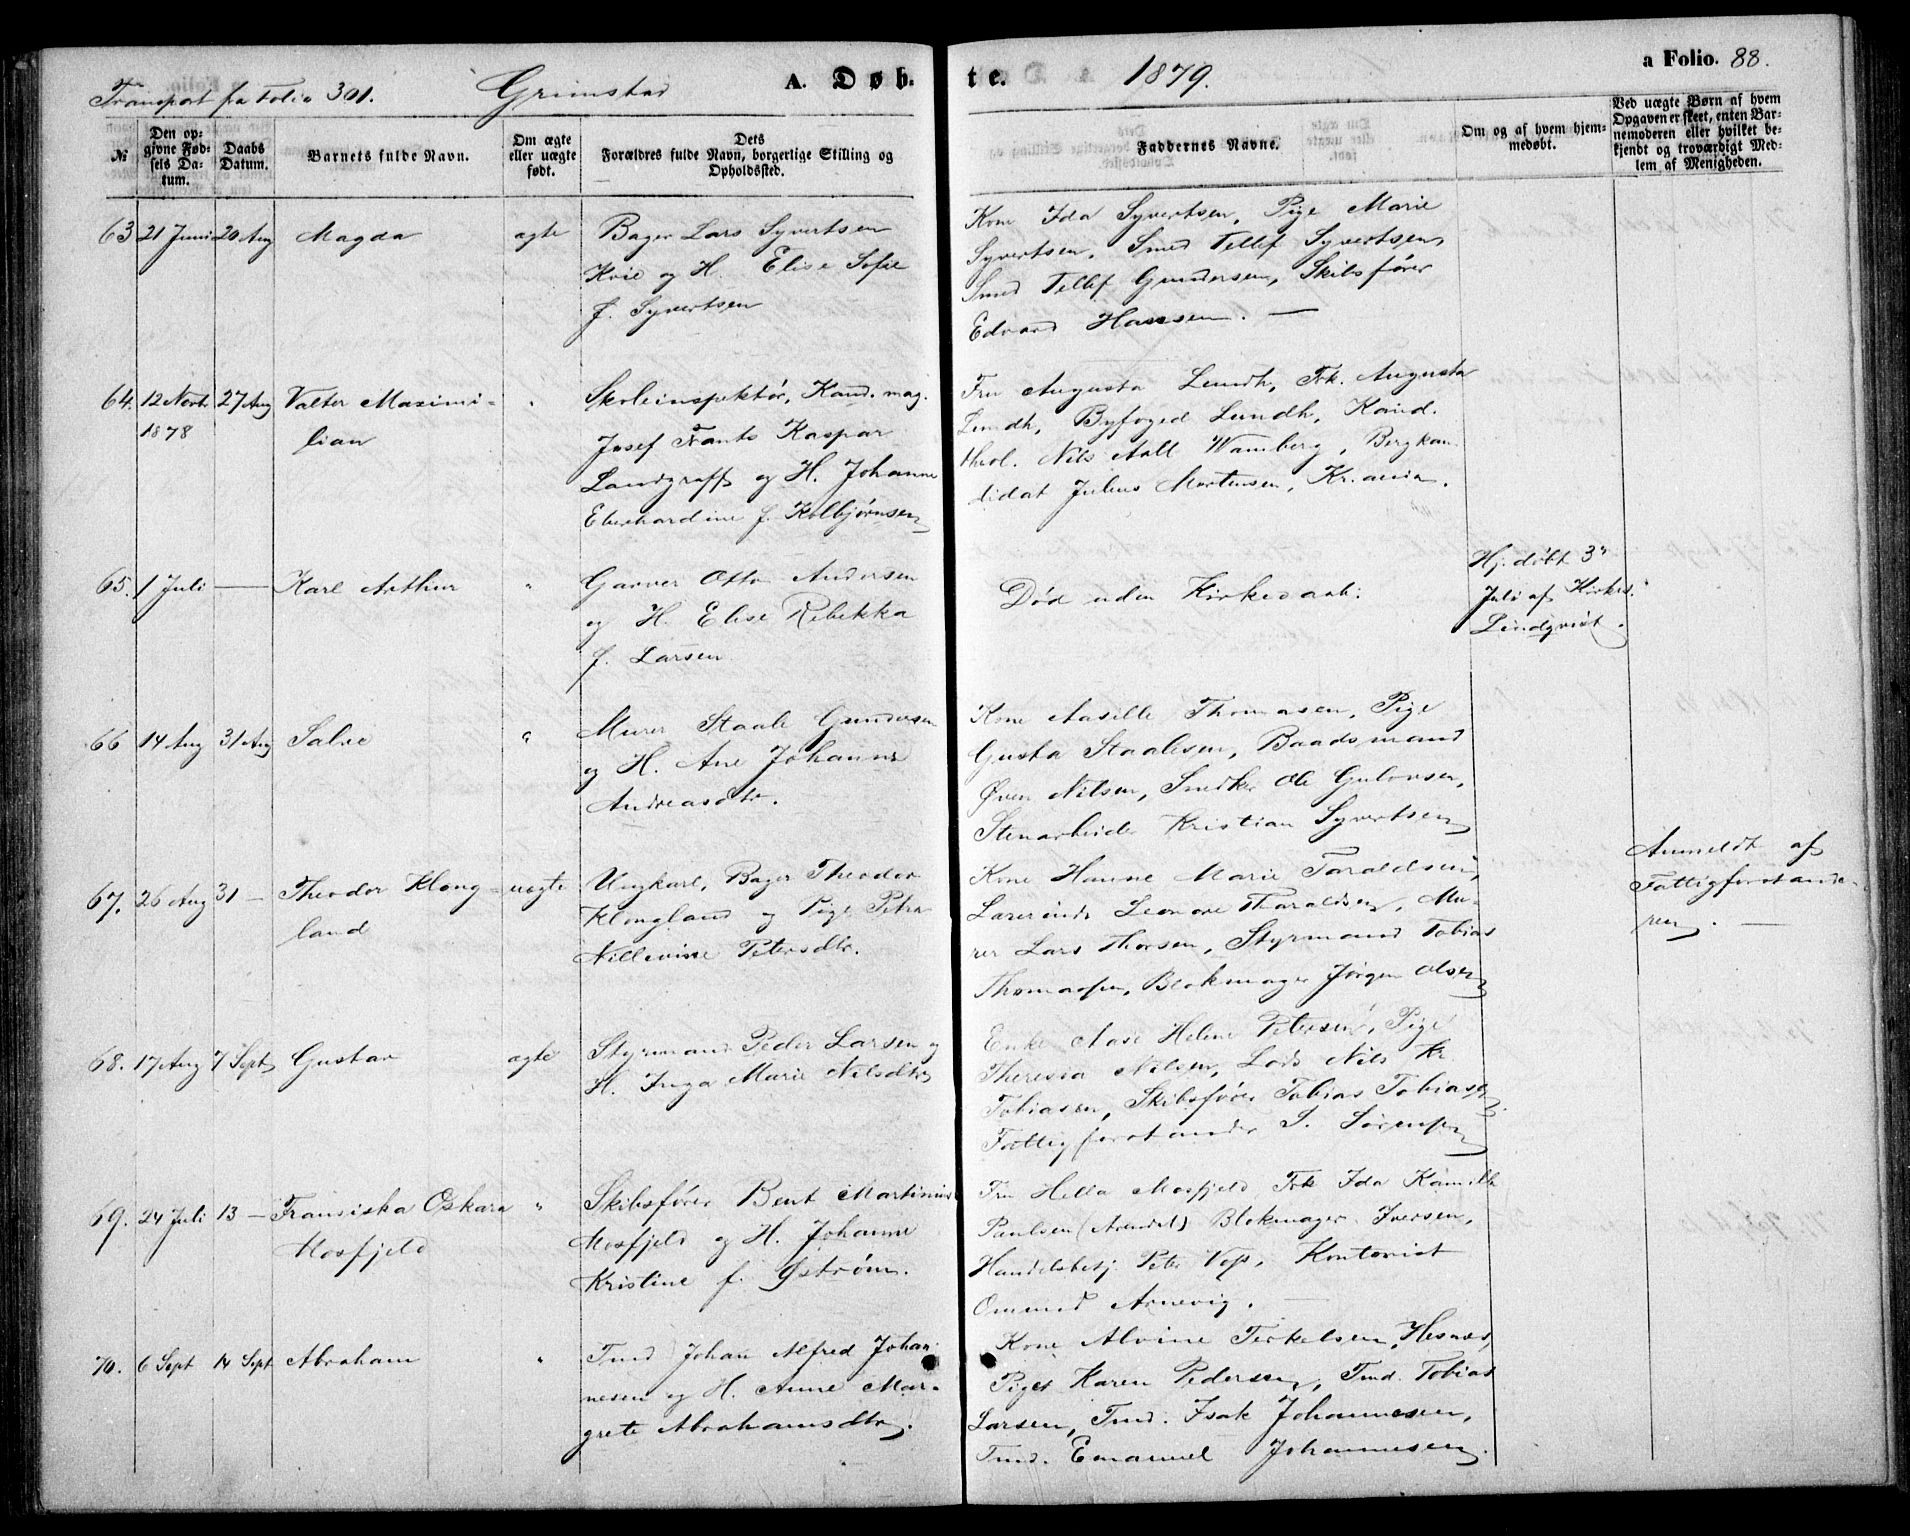 Transport fra Folio 301. Grimstad A. Døbte. 1879. a Folio. 88.
№
Den opgivne Fødsels Datum.
Daabs Datum.
Barnets fulde Navn.
Om ægte eller uægte født.
Dets Forældres fulde Navn, borgerlige Stilling og Opholdssted.
Faddernes Navne.
Om og af hvem hjemmedøbt.
Ved uægte Børn af hvem Opgaven er skeet, enten Barnemoderen eller hvilket bekjendt og troværdigt Medlem af Menigheden.
63 21 Juni 20 Aug Magda ægte
Bager Lars Syvertsen
Kvie og H. Elise Sofie
f. Syvertsen
Kone Ida Syvertsen, Pige Marie
Syvertsen, Smed Tellef Syvertsen,
Smed Tellef Gundersen, Skibsfører
Edvard Hansen. —
64. 12 Novb. 27 Aug Valter Maximi- "
1878 lian
Skoleinspektør, Kand. mag.
Josef Frants Kaspar
Landgraff og H. Johanne
Eberhardine f. Kolbjørnsen
Fru Augusta Lundh, Frk. Augusta
Lundh, Byfoged Lundh, Kand.
theol. Nils Aall Wamberg, Bergkan-
didat Julius Mortensen, Kr.ania.
65. 1 Juli — Karl Arthur "
Garver Otto Andersen
og H. Elise Rebekka
f. Larsen
Død uden Kirkedaab.
Hj. døbt 3'
Juli af Kirkes.
Lindqvist.
66 14 Aug 31 Aug Salve "
Murer Staale Gundersen
og H. Ane Johanne
Andreasdtr.
Kone Aasille Thomasen, Pige
Gusta Staalesen, Baadsmand
Øven Nilsen, Smedker Ole Gulovsen,
Stenarbeider Kristian Syvertsen
67. 26 Aug 31 — Theodor Klong- uægte
land
Ungkarl, Bager Theodor
Klongland og Pige Petra
Nillevine Petersdtr.
Kone Hanne Marie Taraldsen,
Lærerinde Leonore Tharaldsen, Mu-
rer Lars Thorsen, Styrmand Tobias
Thomassen, Blokmager Jørgen Olsen
Anmeldt af
Fattigforstande-
ren. —
68. 17 Aug 7 Sept Gustav ægte
Styrmand Peder Larsen og
H. Inga Marie Nilsdtr
Enke Aase Helene Petersen, Pige
Theresia Nilsen, Lods Nils Kr.
Tobiasen, Skibsfører Tobias Tobiasen,
Fattigforstander S. Sørensen
69. 24 Juli 13 — Fransiska Oskara "
Mosfjeld
Skibsfører Bent Martinius
Mosfjeld og H. Johanne
Kristine f. Ystrøm.
Fru Hella Mosfjeld, Frk Ida Kamilla
Paulsen (Arendal) Blokmager Iversen,
Handelsbetj. Peter Voss, Kontorist
Omund Arnevig. —
70. 6 Sept 14 Sept Abraham "
Tmd Johan Alfred Johan-
nesen og H. Anne Mar-
grete Abrahamsdtr.
Kone Alvine Terkelsen, Hesnes,
Pige Karen Pedersen, Tmd. Tobias
Larsen, Tmd. Isak Johannesen,
Tmd. Emanuel Johannesen.